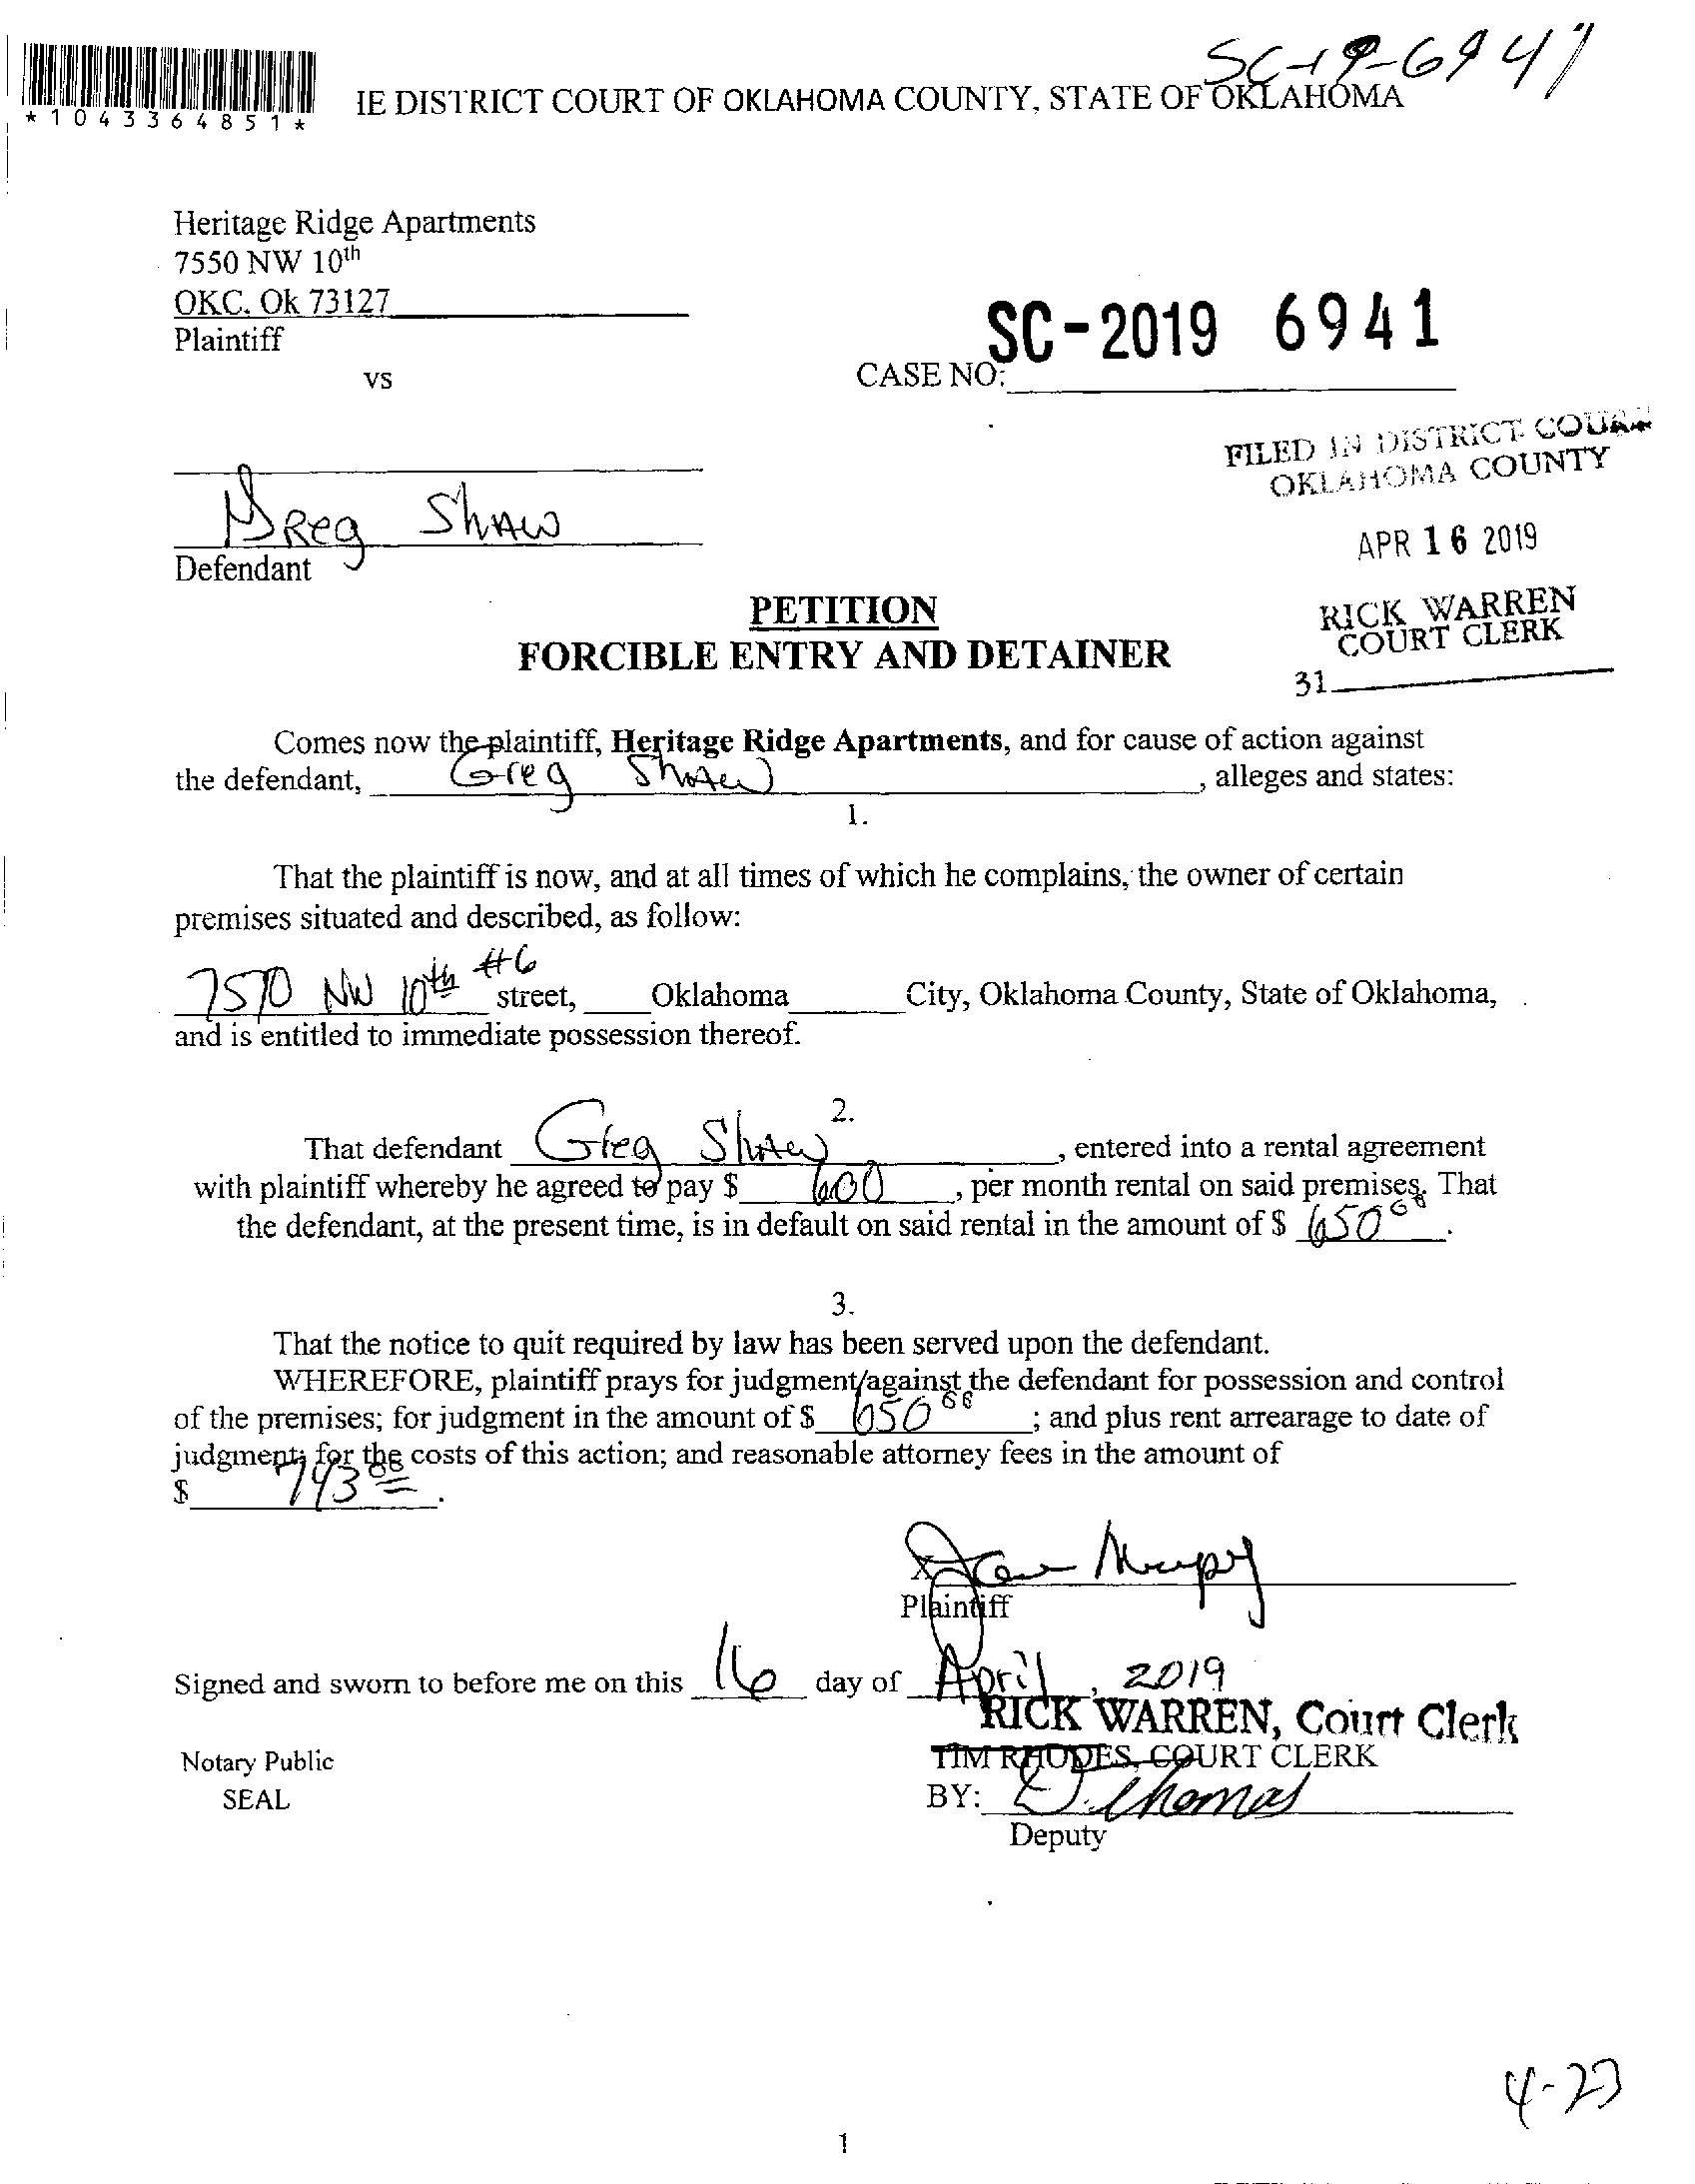 SC-19-6941
*1043364851*
IE DISTRICT COURT OF OKLAHOMA COUNTY, STATE OF OKLAHOMA
Heritage Ridge Apartments
7550 NW 10th
OKC, Ok 73127
Plaintiff
vs
SC-2019 6941
CASE NO:
FILED IN DISTRICT COURT
OKLAHOMA COUNTY
APR 16 2019
RICK WARREN
COURT CLERK
31
Greg Shaw
Defendant
PETITION
FORCIBLE ENTRY AND DETAINER
Comes now the plaintiff, Heritage Ridge Apartments, and for cause of action against
the defendant, Greg Shaw, alleges and states:
1.
That the plaintiff is now, and at all times of which he complains, the owner of certain
premises situated and described, as follow:
7570 NW 10th #6 street, Oklahoma City, Oklahoma County, State of Oklahoma,
and is entitled to immediate possession thereof.
2.
That defendant Greg Shaw, entered into a rental agreement
with plaintiff whereby he agreed to pay $ 600, per month rental on said premises. That
the defendant, at the present time, is in default on said rental in the amount of $ 650 00.
3.
That the notice to quit required by law has been served upon the defendant.
WHEREFORE, plaintiff prays for judgment/against the defendant for possession and control
of the premises; for judgment in the amount of $ 650 00; and plus rent arrearage to date of
judgment; for the costs of this action; and reasonable attorney fees in the amount of
$ 743 00.
X
Plaintiff
Signed and sworn to before me on this 16 day of April, 2019
RICK WARREN, Court Clerk
Notary Public
TIM RHODES, COURT CLERK
SEAL
BY: D. Thomas
Deputy
4-23
1